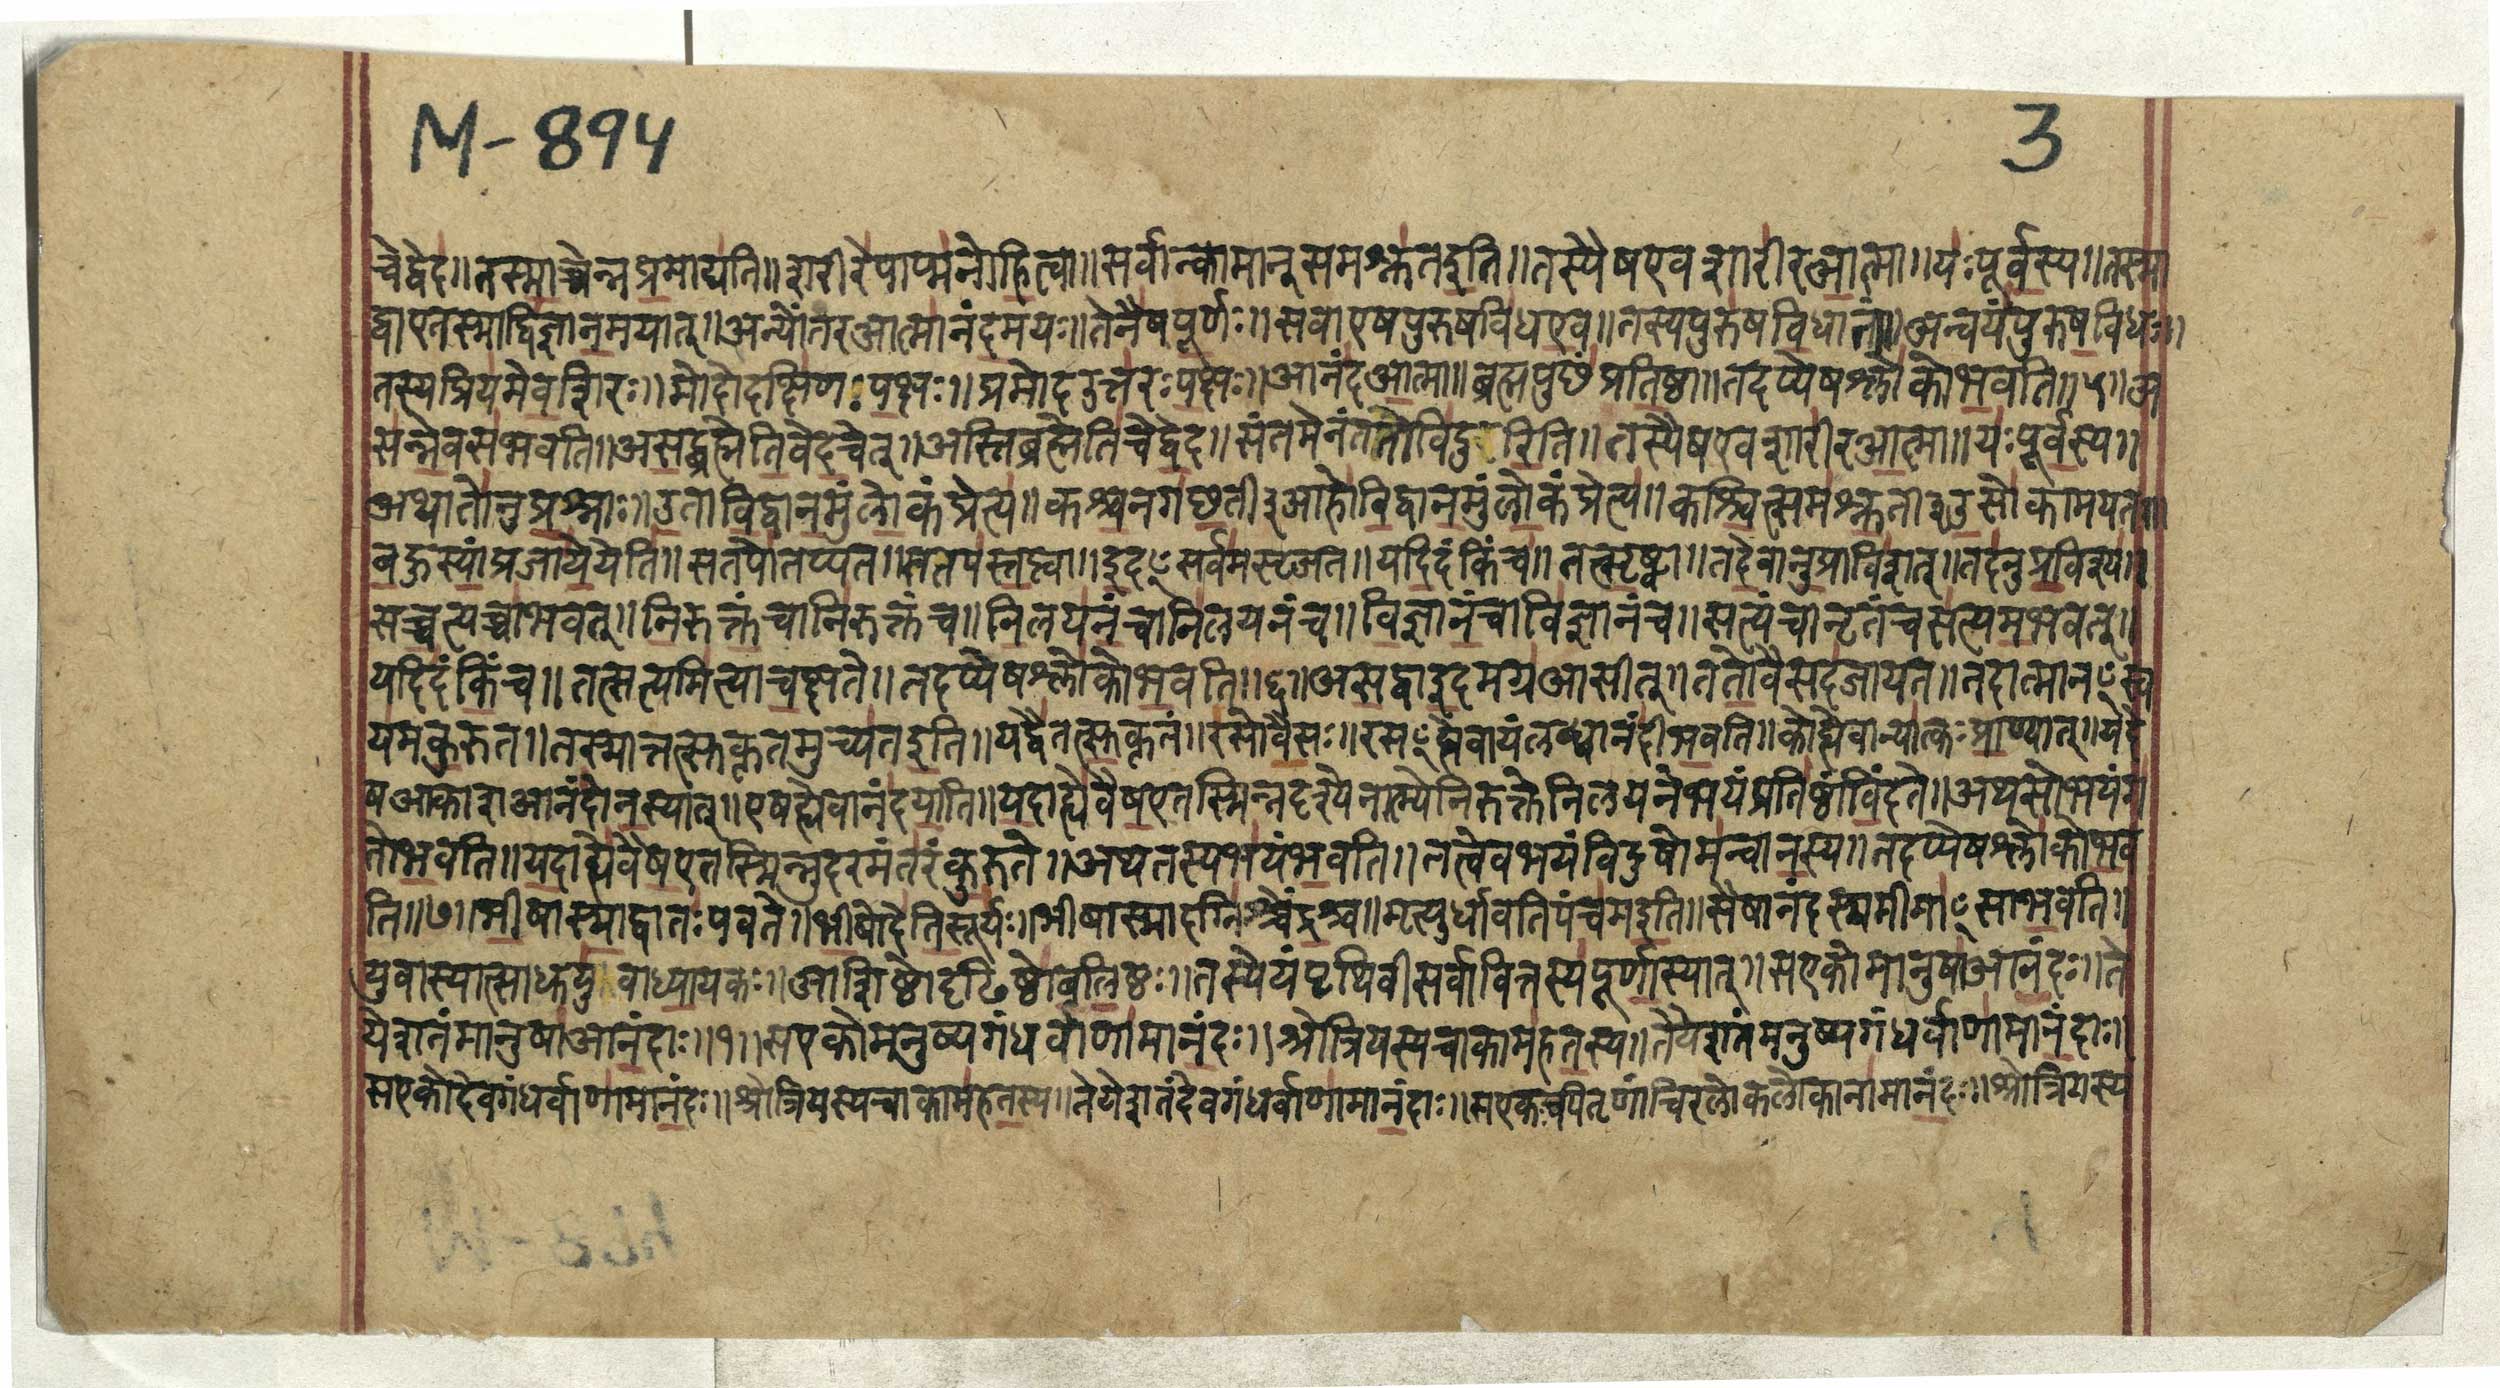 M-894
3
चेद्वेद॥तस्माच्चेन्नप्रमाद्यति॥शरीरेपाप्मनोहित्वा॥सर्वान्कामान्समश्नुतइति॥तस्यैषएवशारीरआत्मा॥यःपूर्वस्य॥तस्मा
द्वाएतस्माद्विज्ञानमयात्॥अन्योंतरआत्मानंदमयः॥तेनैषपूर्णः॥सवाएषपुरुषविधएव॥तस्यपुरुषविधतां॥अन्वयंपुरुषविधः॥
तस्यप्रियमेवशिरः॥मोदोदक्षिणःपक्षः॥प्रमोदउत्तरःपक्षः॥आनंदआत्मा॥ब्रह्मपुछंप्रतिष्ठा॥तदप्येषश्लोकोभवति॥५॥अ
सन्नेवसभवति॥असद्ब्रह्मेतिवेदचेत्॥अस्तिब्रह्मेतिचेद्वेद॥संतमेनंततोविदुरिति॥तस्यैषएवशारीरआत्मा॥यःपूर्वस्य॥
अथातोनुप्रश्नाः॥उताविद्वानमुंलोकंप्रेत्य॥कश्चनगछती३आहोविद्वानमुंलोकंप्रेत्य॥कश्चित्समश्नुता३उसोकामयत॥
बहुस्यांप्रजायेयेति॥सतपोतप्यत॥सतपस्तप्त्वा॥इदꣳसर्वमसृजत॥यदिदंकिंच॥तत्सृष्ट्वा॥तदेवानुप्राविशत्॥तदनुप्रविश्य॥
सच्चत्यच्चाभवत्॥निरुक्तंचानिरुक्तंच॥निलयनंचानिलयनंच॥विज्ञानंचाविज्ञानंच॥सत्यंचानृतंचसत्यमभवत्॥
यदिदंकिंच॥तत्सत्यमित्याचक्षते॥तदप्येषश्लोकोभवति॥६॥असद्वाइदमग्रआसीत्॥ततोवैसदजायत॥तदात्मानꣳस्व
यमकुरुत॥तस्मात्तत्सुकृतमुच्यतइति॥यद्वैतत्सुकृतं॥रसोवैसः॥रसꣳह्येवायंलब्ध्वानंदीभवति॥कोह्येवान्यात्कःप्राण्यात्॥यदे
षआकाशआनंदोनस्यात्॥एषह्येवानंदयाति॥यदाह्येवैषएतस्मिन्नदृश्येनात्म्येनिरुक्तेनिलयनेभयंप्रतिष्ठांविंदते॥अथसोभयंग
तोभवति॥यदाह्येवैषएतस्मिन्नुदरमंतरंकुरुते॥अथतस्यभयंभवति॥तत्वेवभयंविदुषोमन्वानस्य॥तदप्येषश्लोकोभव
ति॥७॥भीषास्माद्वातःपवते॥भीषोदेतिसूर्यः॥भीषास्मादग्निश्चेंद्रश्च॥मृत्युर्धावतिपंचमइति॥सैषानंदस्यमीमाꣳसाभवति॥
युवास्यात्साधुयुवाध्यायकः॥आशिष्ठोदृढिष्ठोबलिष्ठः॥तस्येयंपृथिवीसर्वावित्तस्यपूर्णास्यात्॥सएकोमानुषआनंदः॥ते
येशतंमानुषाआनंदाः॥१॥सएकोमनुष्यगंधर्वाणामानंदः॥श्रोत्रियस्यचाकामहतस्य॥तेयेशतंमनुष्यगंधर्वाणामानंदाः॥
सएकोदेवगंधर्वाणामानंदः॥श्रोत्रियस्यचाकामहतस्य॥तेयेशतंदेवगंधर्वाणामानंदाः॥सएकःपितृणांचिरलोकलोकानामानंदः॥श्रोत्रियस्य